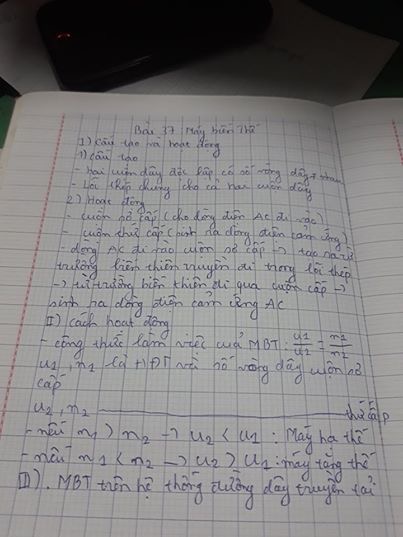 Bài 37 Máy biến Thế
I) Cấu tạo và hoạt động
1) Cấu tạo
- Hai cuộn dây độc lập có số vòng dây ≠ nhau
- Lõi thép chung cho cả hai cuộn dây
2) Hoạt động
- cuộn sơ cấp (cho dòng điện AC đi vào)
- cuộn thứ cấp (sinh ra dòng điện cảm ứng)
- dòng AC đi vào cuộn sơ cấp → tạo ra từ
trường biến thiên truyền đi trong lõi thép
→ từ trường biến thiên đi qua cuộn cấp →
sinh ra dòng điện cảm ứng AC
II) cách hoạt động
- công thức làm việc của MBT: u1/u2 = n1/n2
u1, n1 là HĐT và số vòng dây cuộn sơ
cấp
u2, n2 ——— thứ cấp
- nếu n1 > n2 → u2 < u1 : Máy hạ thế
- nếu n1 < n2 → u2 > u1 : máy tăng thế
III). MBT trên hệ thống đường dây truyền tải